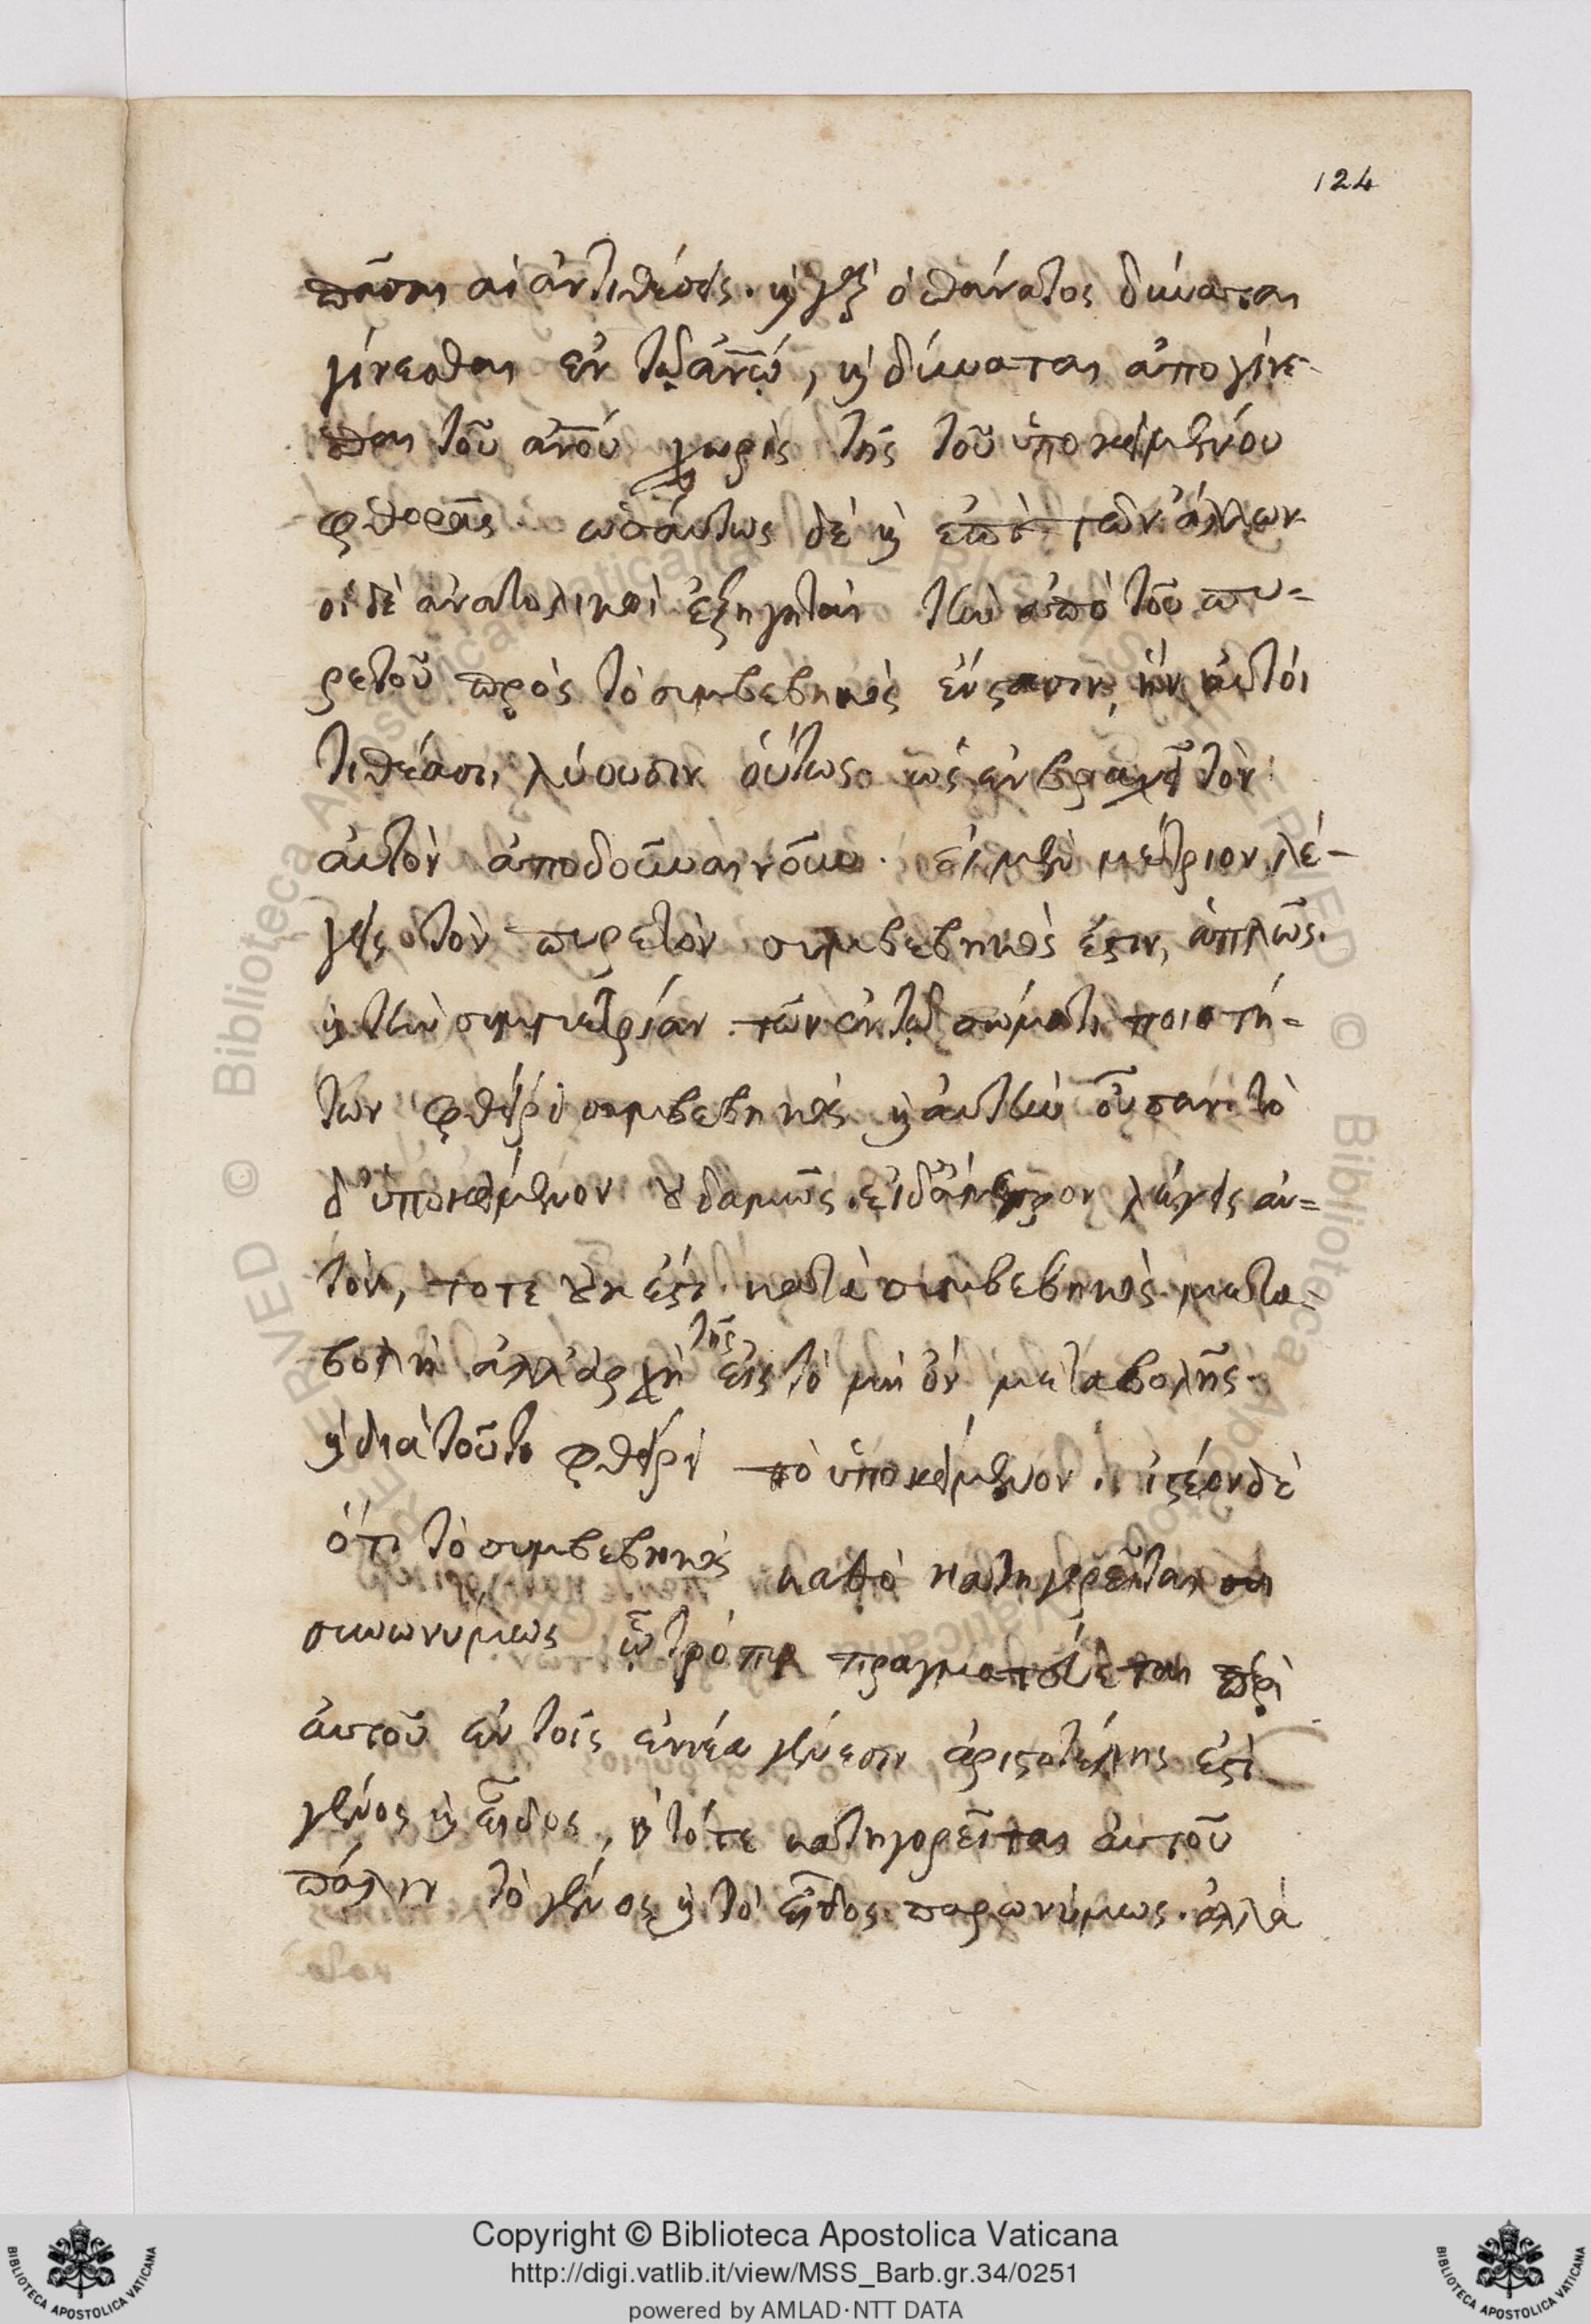 124
πᾶσαι αἱ ἀντιθέσεις. καὶ γὰρ ὁ θάνατος δύναται
γίνεσθαι ἐν τῷ ἀνῶ, καὶ δύναται ἀπογίνε-
σθαι τοῦ ἀνοῦ χωρὶς τῆς τοῦ ὑποκειμένου
φθορᾶς. ὡσάυτως δὲ καὶ ἐπὶ τῶν ἄλλων
οἱ δὲ ἀνατολικοὶ ἐξηγηταὶ τὴν ἀπὸ τοῦ πυ-
ρετοῦ πρὸς τὸ συμβεβηκὸς ἔνστασιν, ἣν αὐτόι
τιθέασι, λύουσιν ὅυτως. ὡς ἐν βραχεῖ τὸν
ἀυτὸν ἀποδοῦναι νοῦν. εἰ μὲν μέτριον λέ-
γεις τὸν πυρετὸν συμβεβηκός ἐστιν, ἁπλῶς.
καὶ τὴν συμμετρίαν τῶν ἐν τῷ σώματι ποιοτή-
των φθείρει συμβεβηκὸς καὶ ἀυτὴν οὖσαν. τὸ
δ' ὑποκείμενον οὐδαμῶς. εἰ δ' ἄμετρον λέγεις ἀυ-
τὸν, τοτε οὐκ ἔστι κατὰ συμβεβηκὸς μετα-
βολὴ ἀλλ' ἀρχὴ τῆς εἰς τὸ μὴ ὂν μεταβολῆς.
καὶ διὰ τοῦτο φθείρει τὸ ὑποκείμενον. ἰστέον δὲ
ὅτι τὸ συμβεβηκὸς καθὸ κατηγορεῖται
συνωνυμως ᾧ τρόπῳ πραγματεύεται περὶ
ἀυτοῦ ἐν τοῖς ἐννέα γένεσιν ἀριστοτέλης ἐστὶ
γένος καὶ εἶδος, καὶ τότε κατηγορεῖται ἀυτοῦ
πάλιν τὸ γένος καὶ τὸ εἶδος παρωνύμως. ἀλλὰ
Copyright © Biblioteca Apostolica Vaticana
http://digi.vatlib.it/view/MSS_Barb.gr.34/0251
powered by AMLAD·NTT DATA
BIBLIOTECA APOSTOLICA VATICANA
BIBLIOTECA APOSTOLICA VATICANA